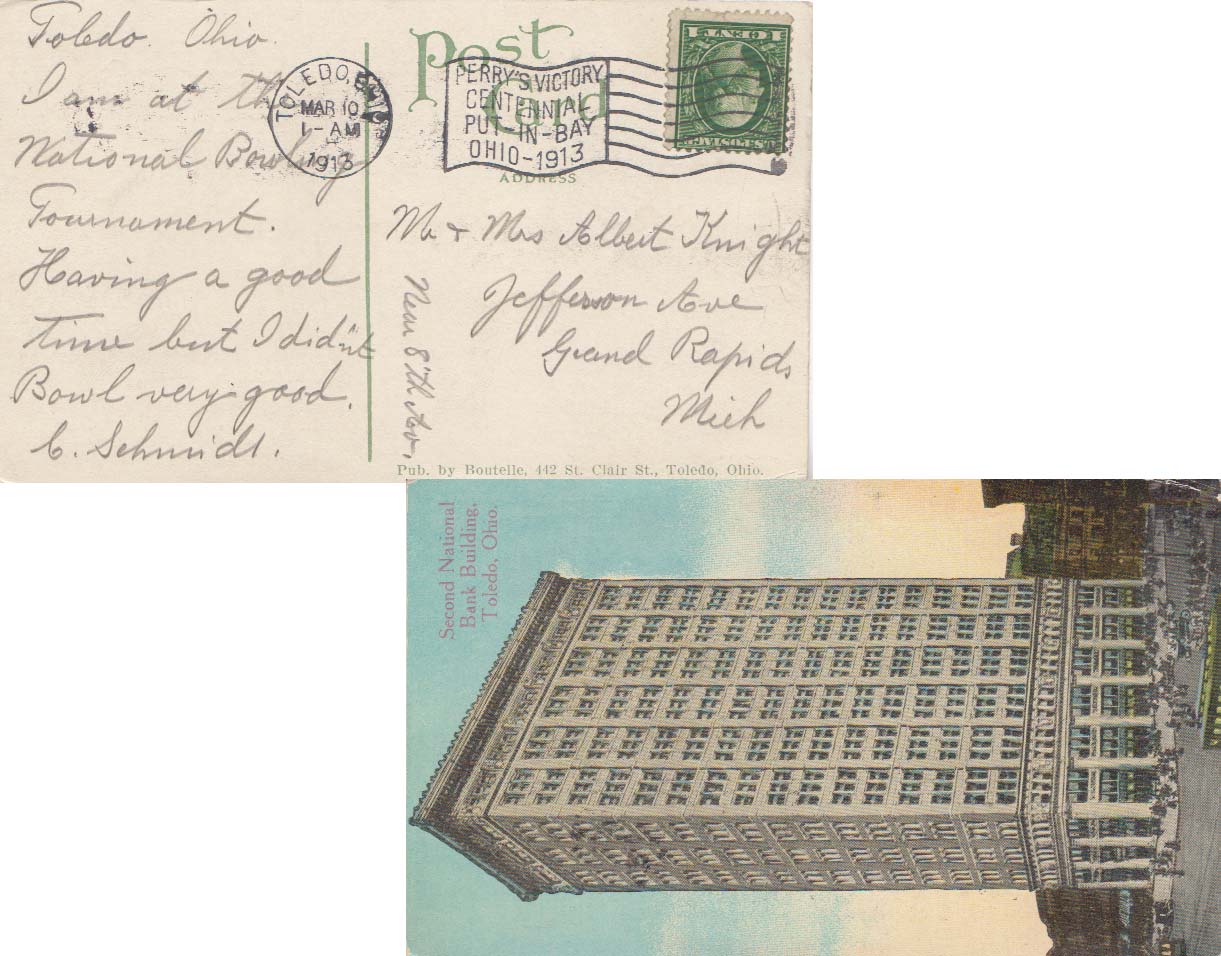 Toledo. Ohio.
I am at the
National Bowling
Tournament.
Having a good
time but I did"nt
Bowl very good.
C. Schmidt.
Post Card
TOLEDO, O
MAR 10
1-AM
1913
PERRY'S VICTORY
CENTENNIAL
PUT-IN-BAY
OHIO-1913
1 CENT 1
ADDRESS
Mr + Mrs Albert Knight
Jefferson Ave
Grand Rapids
Mich
Near 8th Av.
Pub. by Boutelle, 442 St. Clair St., Toledo, Ohio.
Second National
Bank Building,
Toledo, Ohio.